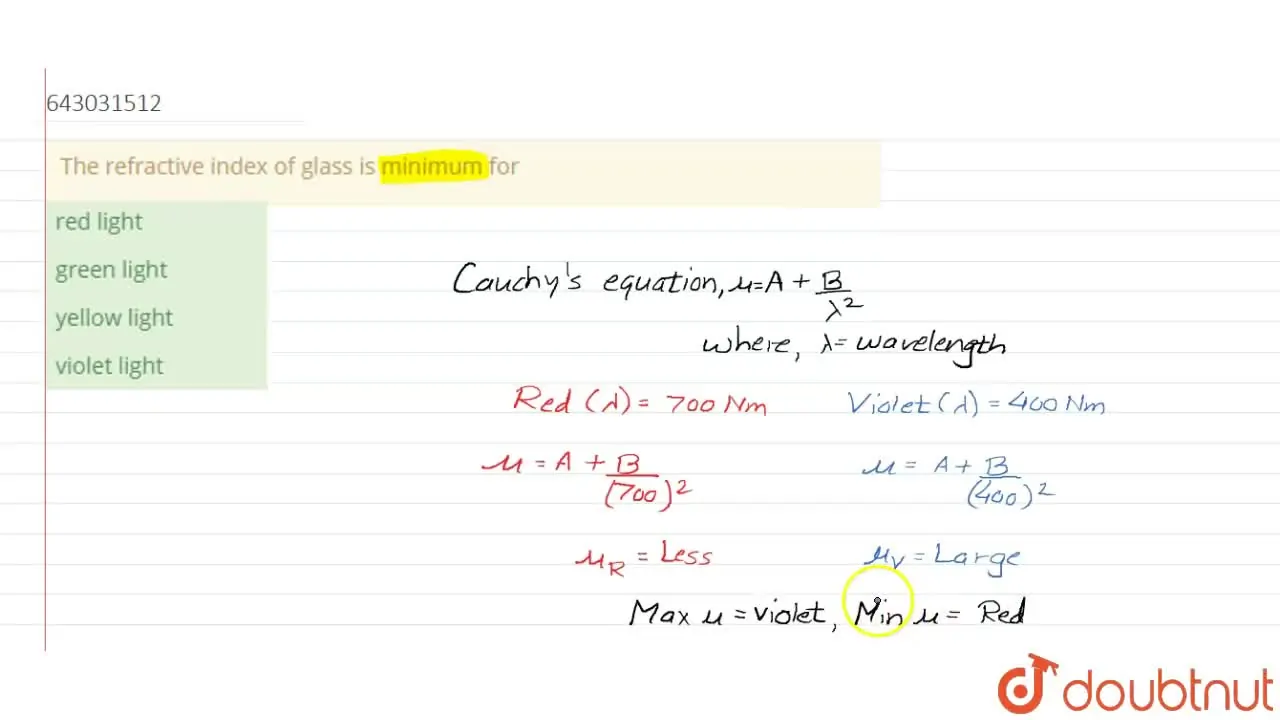 643031512
The refractive index of glass is minimum for
red light
green light
yellow light
violet light
Cauchy's equation, μ=A + B/λ²
where, λ= wavelength
Red (λ) = 700 Nm
Violet (λ) = 400 Nm
μ = A + B/(700)²
μ = A + B/(400)²
μR = Less
μV = Large
Max μ = violet, Min μ = Red
doubtnut